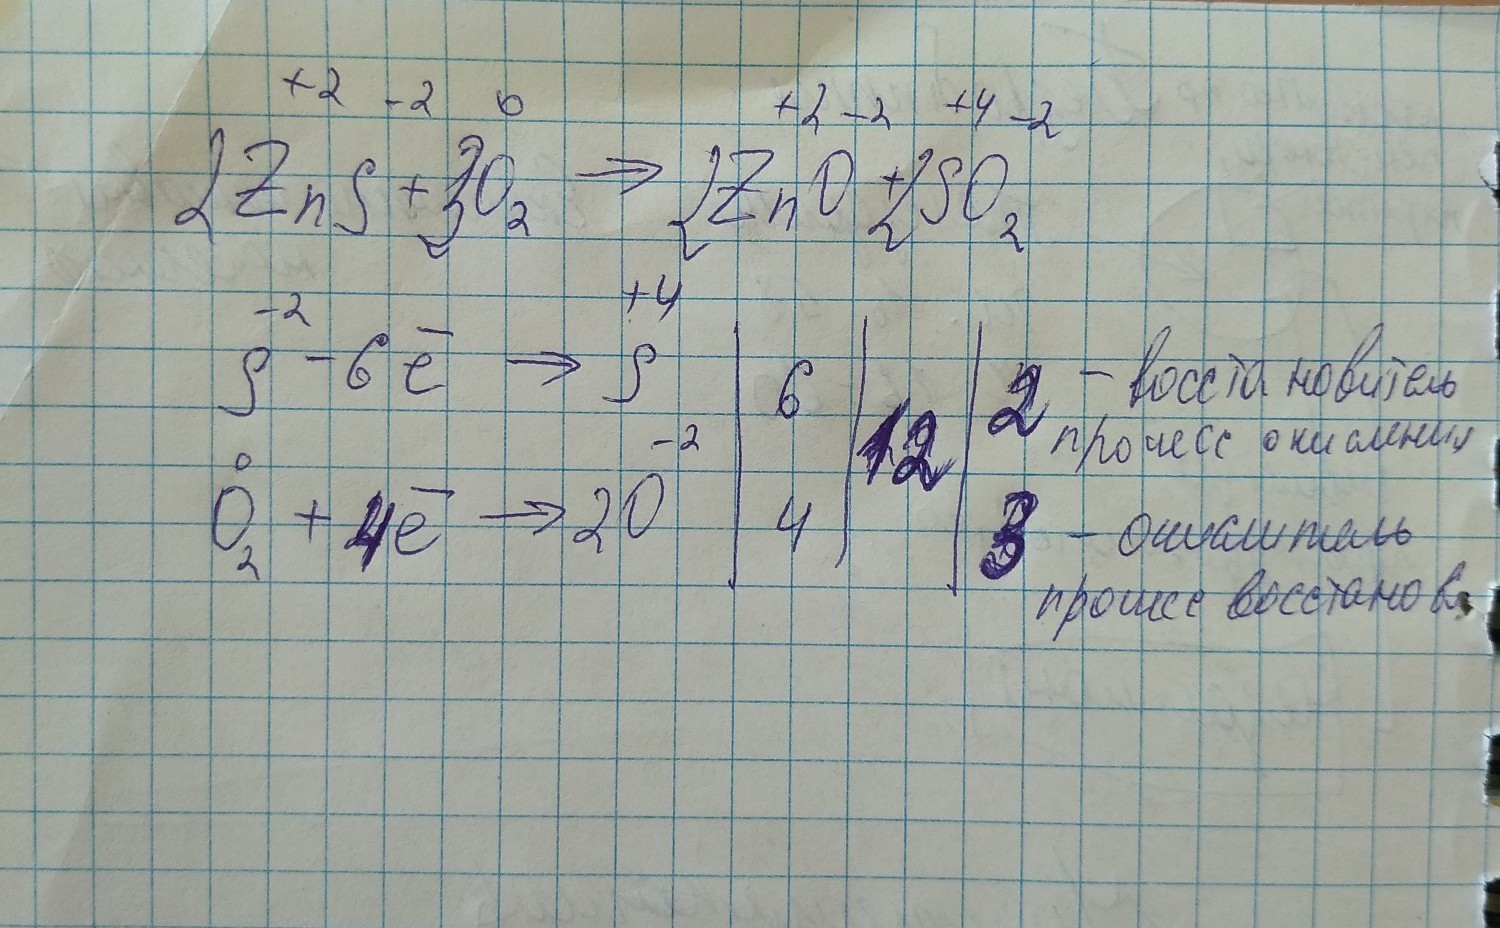 +2 -2 0 +2 -2 +4 -2
2ZnS + 3O2 → 2ZnO + 2SO2
-2 +4
S - 6e̅ → S | 6 | 12 | 2 - восстановитель
процесс окисления
0 -2
O2 + 4e̅ → 2O | 4 | | 3 - окислитель
процесс восстанов.